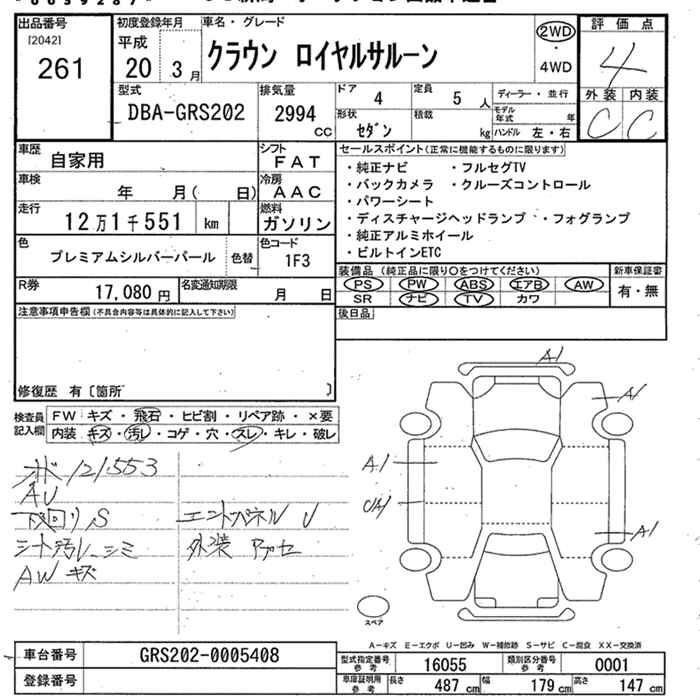 出品番号 初度登録年月 車名・グレード 評価点
[2042] 平成 2WD
261 20 3月 クラウン ロイヤルサルーン ・ 4
4WD
外装 内装
型式 排気量 ドア 4 定員 5 人 ディーラー・並行 C C
DBA-GRS202 2994 CC 形状 セダン 積載 kg モデル年式 年
ハンドル 左・右
車歴 自家用 シフト FAT セールスポイント(正常に機能するものに限ります)
車検 年 月( 日) 冷房 AAC ・純正ナビ ・フルセグTV
・バックカメラ ・クルーズコントロール
走行 12万1千551 km 燃料 ガソリン ・パワーシート
・ディスチャージヘッドランプ ・フォグランプ
色 プレミアムシルバーパール 色替 色コード 1F3 ・純正アルミホイール
・ビルトインETC
R券 17,080円 名変通知期限 月 日 装備品(純正品に限り〇をつけてください) 新車保証書
PS PW ABS エアB AW 有・無
SR ナビ TV カワ
注意事項申告欄(不具合内容等は具体的に記入して下さい) 後日品
修復歴 有〔箇所 〕
検査員記入欄 FW キズ・飛石・ヒビ割・リペア跡・×要
内装 キズ・汚レ・コゲ・穴・スレ・キレ・破レ
121,553
AU
下回り S エンドパネル U
シート汚レ シミ 外装
AW キズ
A1
A1
A1
UA1
A1
スペア
A-キズ E-エクボ U-凹み W-補修跡 S-サビ C-腐食 XX-交換済
車台番号 GRS202-0005408 型式指定番号 参考 16055 類別区分番号 参考 0001
登録番号 車庫証明用 参考 長さ 487 cm 幅 179 cm 高さ 147 cm